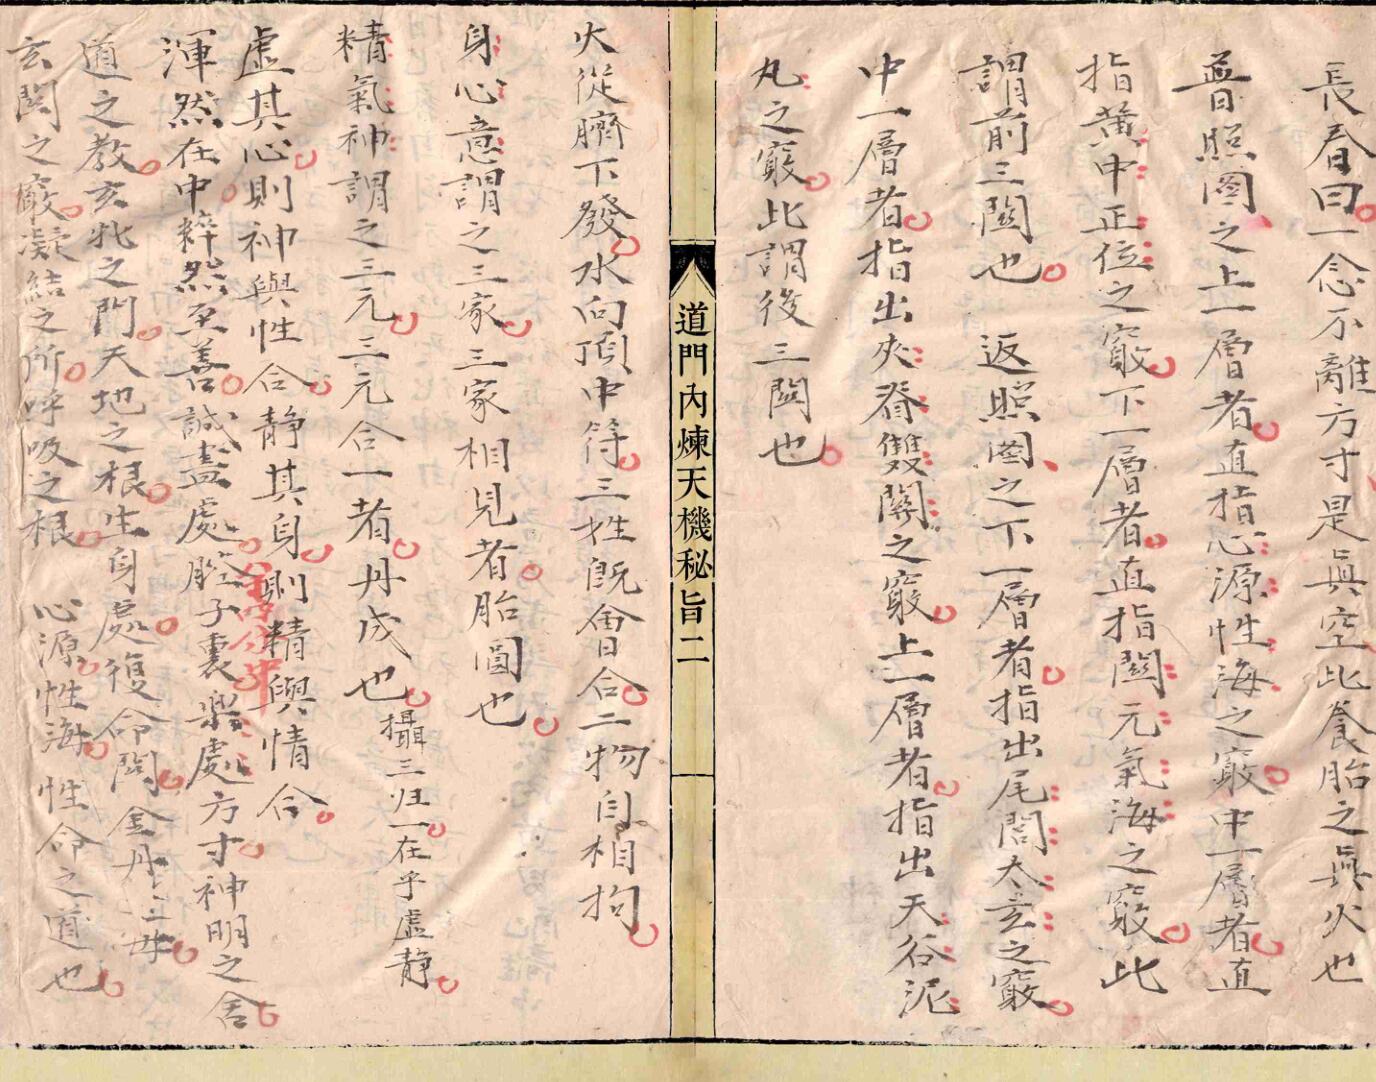 長春曰一念不離方寸是眞空此養胎之眞火也
普照圖之上一層者直指心源性海之竅中一層者直
指黃中正位之竅下一層者直指関元氣海之竅此
謂前三関也 返照圖之下一層者指出尾閭太玄之竅
中一層者指出夾脊雙關之竅上一層者指出天谷泥
丸之竅此謂後三関也
道門內煉天機秘旨二
火從臍下發水向頂中符三姓旣會合二物自相拘
身心意謂之三家三家相見者胎圓也
精氣神謂之三元三元合一者丹成也攝三归一在乎虛靜
虛其心則神與性合静其身則精與情合
渾然在中粹然至善誠盡處腔子裏樂處方寸神明之舍
道之教玄牝之門天地之根生身處復命関金丹之母
玄関之竅凝結之所呼吸之根 心源性海性命之道也